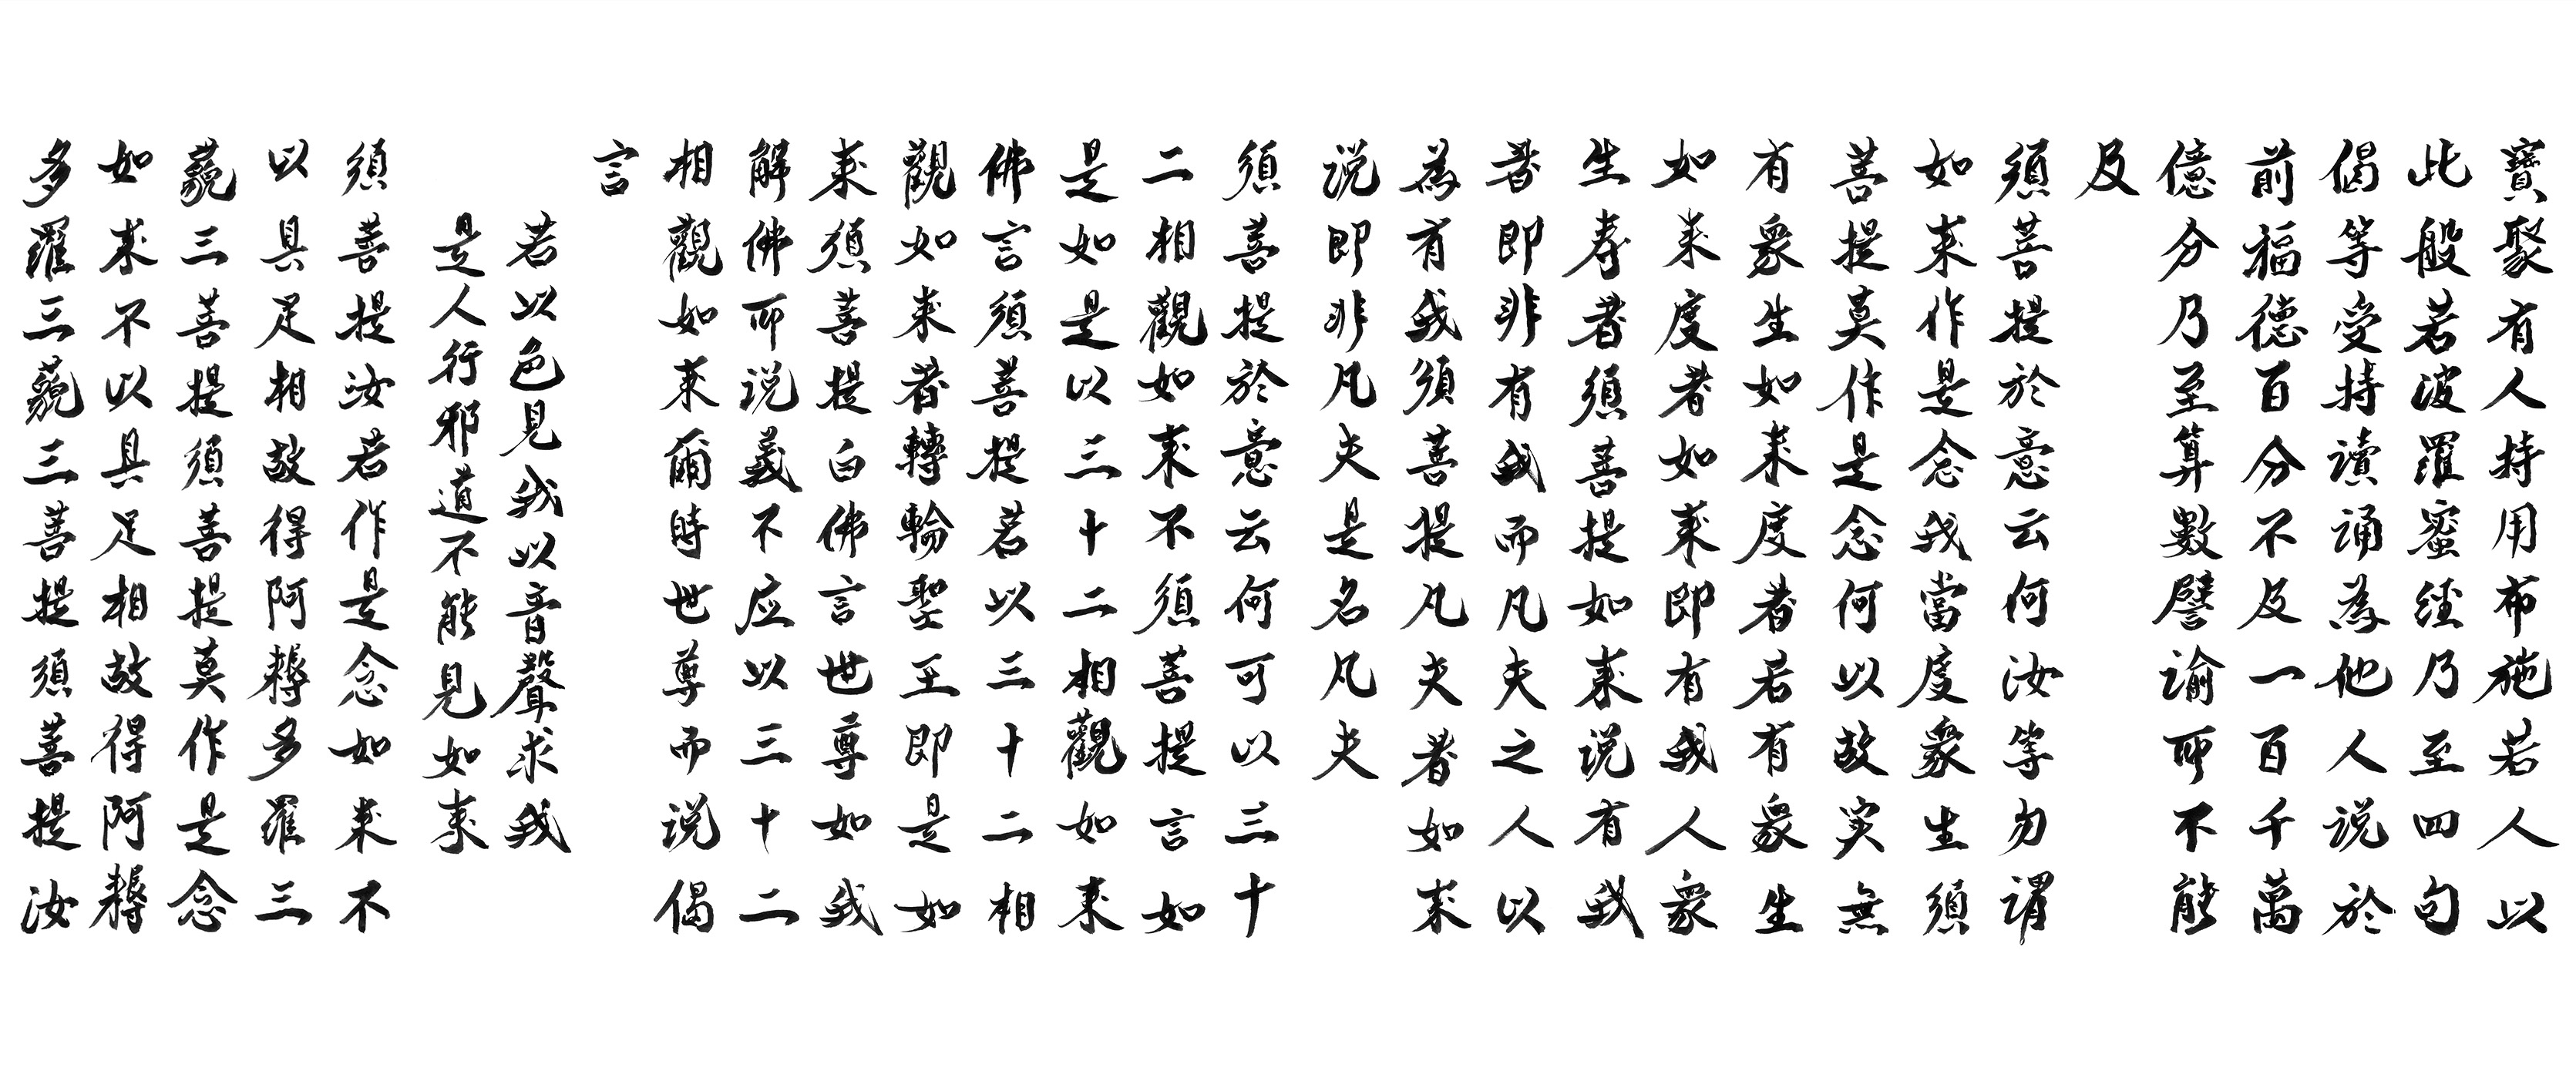 寶聚有人持用布施若人以
此般若波羅蜜經乃至四句
偈等受持讀誦為他人说於
前福德百分不及一百千萬
億分乃至算數譬谕所不能
及
須菩提於意云何汝等勿谓
如来作是念我當度眾生須
菩提莫作是念何以故实無
有眾生如来度者若有眾生
如来度者如来即有我人眾
生寿者須菩提如来说有我
者即非有我而凡夫之人以
為有我須菩提凡夫者如来
说即非凡夫是名凡夫
須菩提於意云何可以三十
二相觀如来不須菩提言如
是如是以三十二相觀如来
佛言須菩提若以三十二相
觀如来者轉輪聖王即是如
来須菩提白佛言世尊如我
解佛所说義不应以三十二
相觀如来爾時世尊而说偈
言
若以色見我以音聲求我
是人行邪道不能見如来
須菩提汝若作是念如来不
以具足相故得阿耨多羅三
藐三菩提須菩提莫作是念
如来不以具足相故得阿耨
多羅三藐三菩提須菩提汝